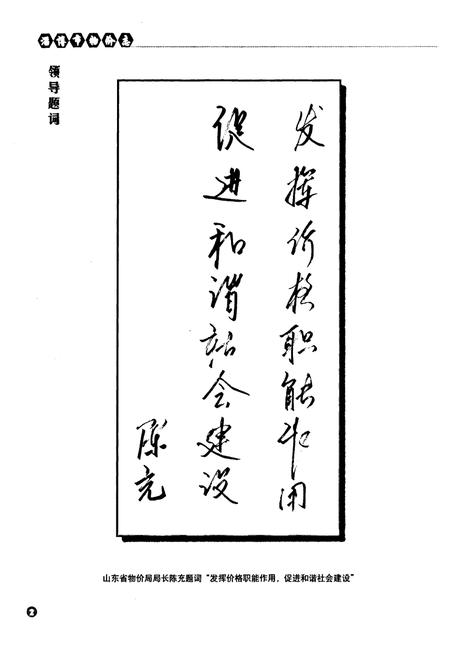 淄博市物价志
领导题词
发挥价格职能作用
促进和谐社会建设
陈充
山东省物价局局长陈充题词“发挥价格职能作用，促进和谐社会建设”
2